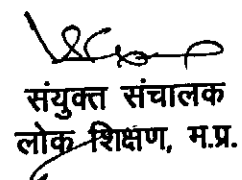 संयुक्त संचालक
लोक शिक्षण, म.प्र.